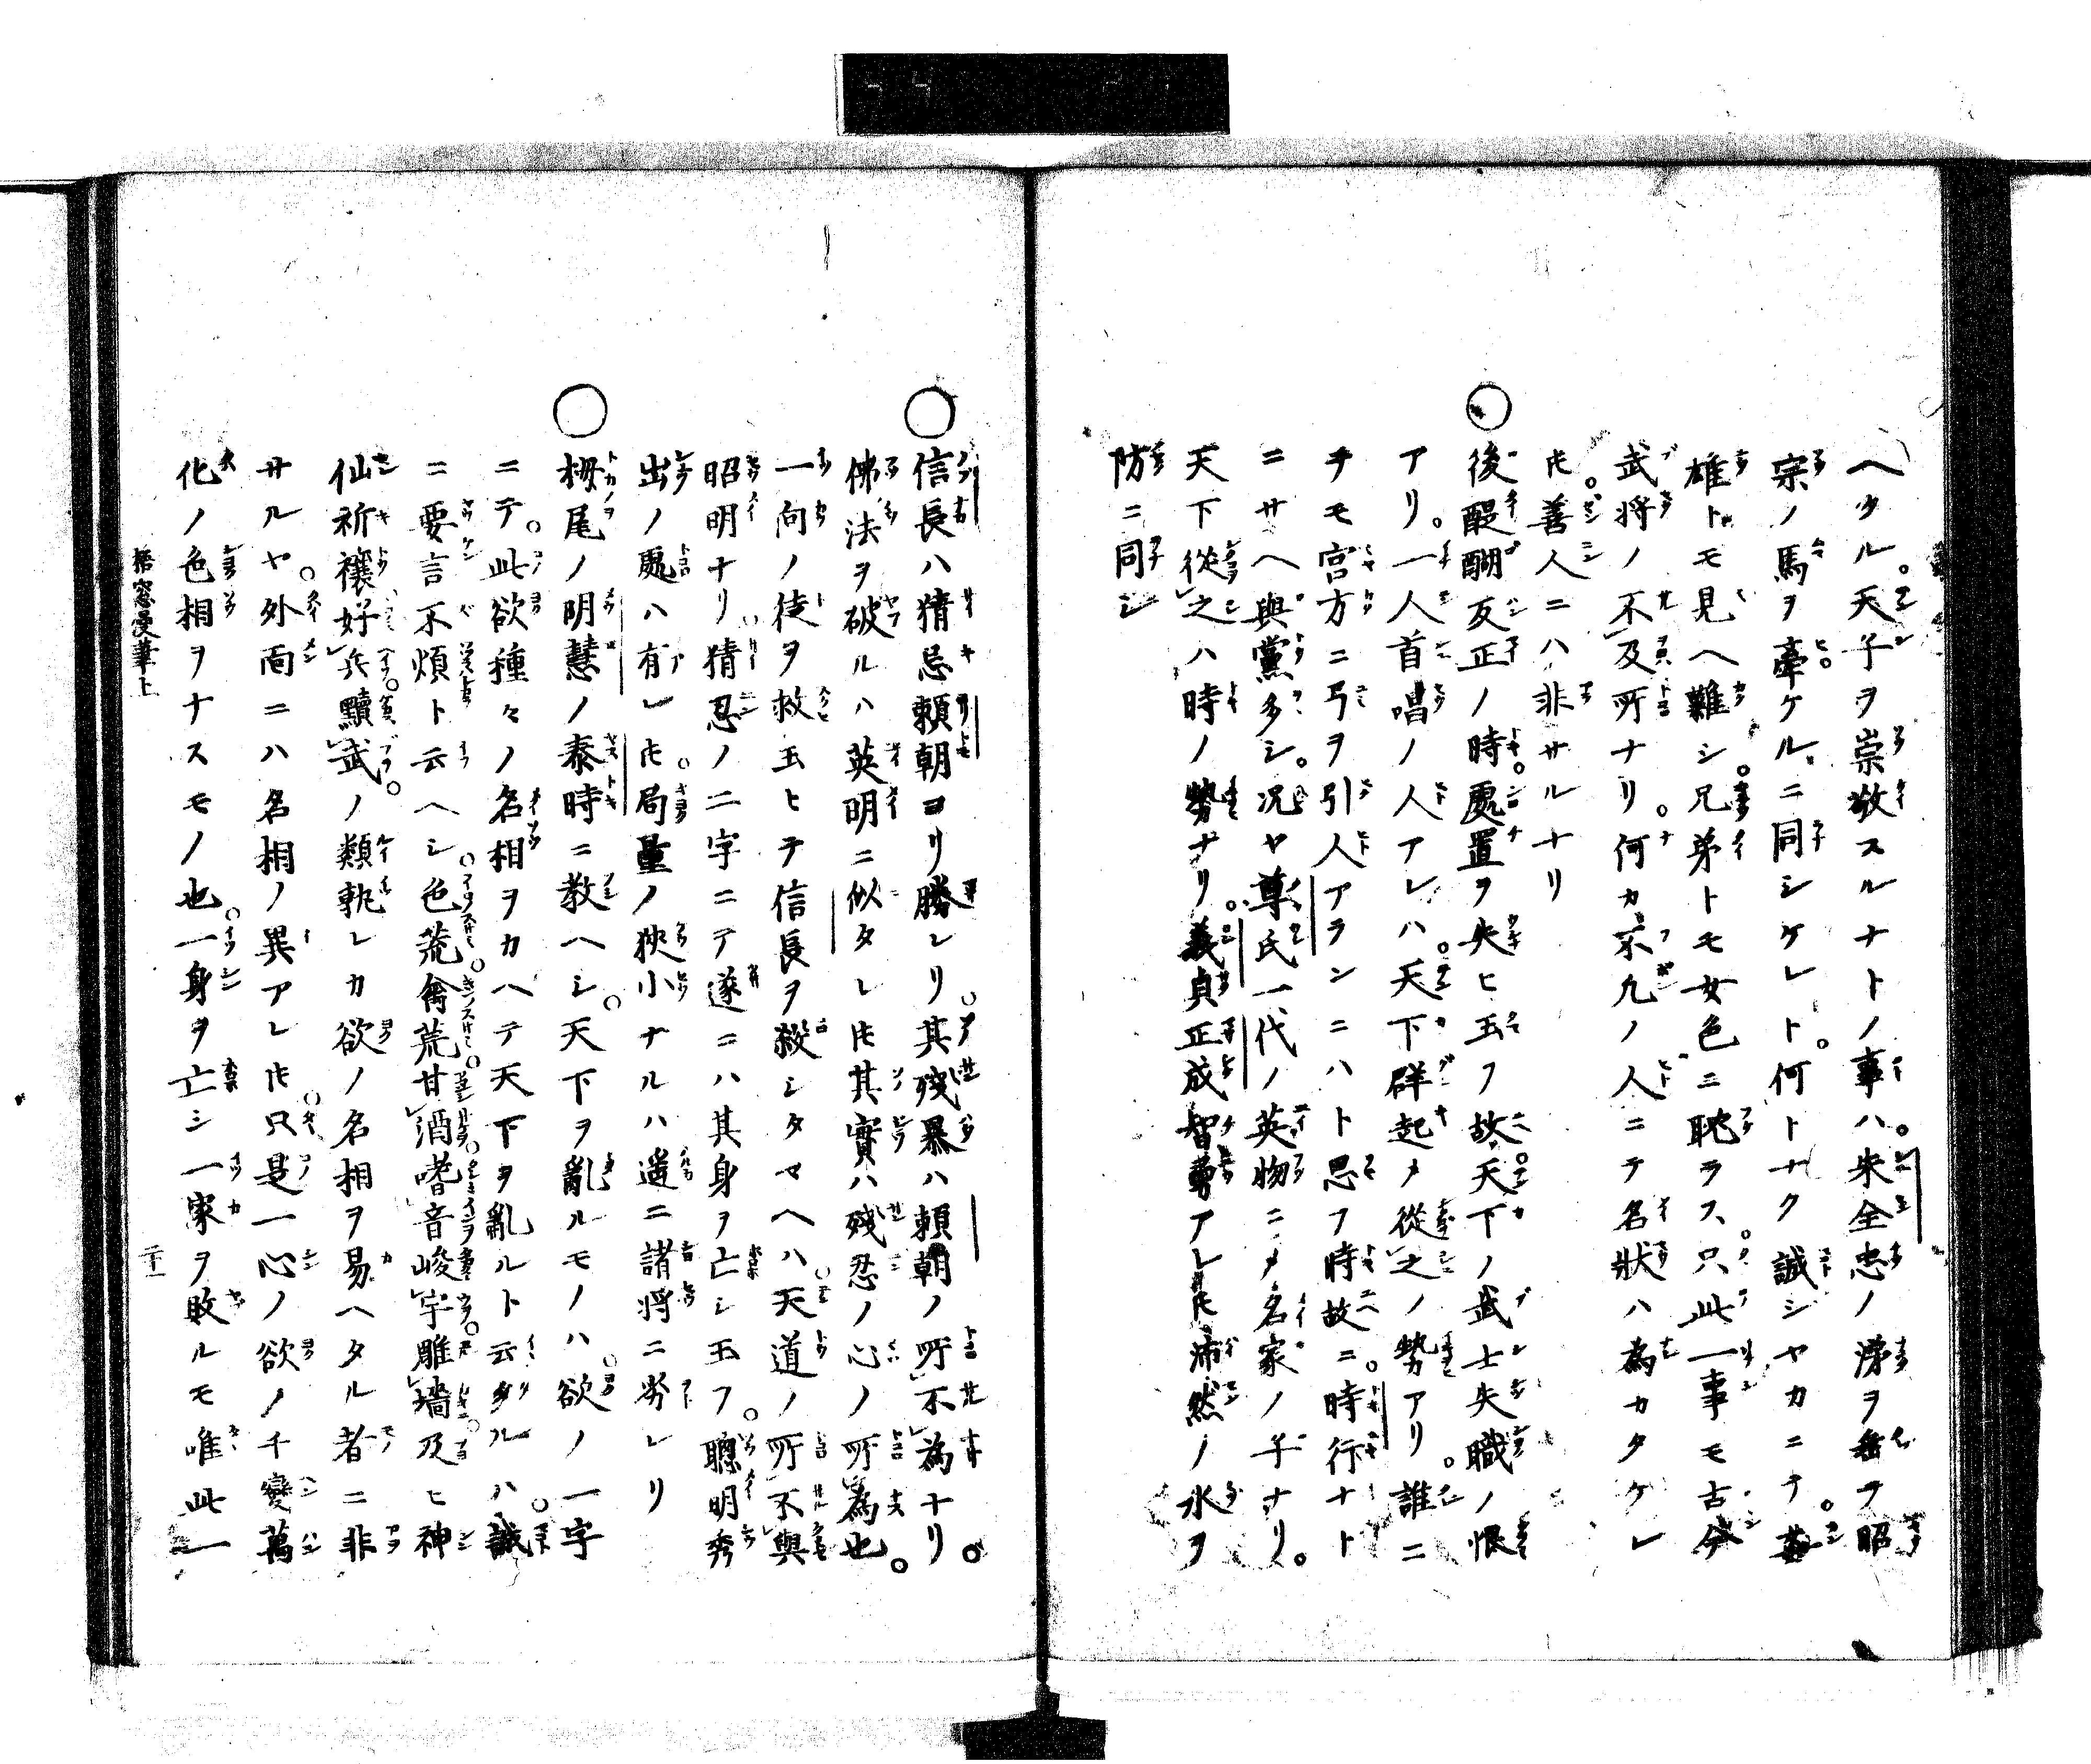 ヘタル天子ヲ崇敬スルナトノ事ハ朱全忠ノ涕ヲ垂テ昭
宗ノ馬ヲ牽ケルニ同シケレト何トナク誠シヤカニテ姦
雄トモ見ヘ難シ兄弟トモ女色ニ耽ラス只此一事モ古今
武将ノ不及所ナリ何カ不凡ノ人ニテ名狀ハ為カタケレ
𪜈善人ニハ非サルナリ
○後醍醐反正ノ時處置ヲ失ヒ玉フ故天下ノ武士失職ノ恨
アリ一人首唱ノ人アレハ天下群起メ從之ノ勢アリ誰ニ
テモ宮方ニ弓ヲ引人アランニハト思フ時故ニ時行ナト
ニサヘ與黨多シ况ヤ尊氏一代ノ英物ニメ名家ノ子ナリ
天下從之ハ時ノ勢ナリ義貞正成智勇アレ𪜈沛然ノ水ヲ
防ニ同シ
○信長ハ猜忌頼朝ヨリ勝レリ其殘暴ハ頼朝ノ所不為ナリ
佛法ヲ破ルハ英明ニ似タレ𪜈其實ハ殘忍ノ心ノ所為也
一向ノ徒ヲ救玉ヒテ信長ヲ殺シタマヘハ天道ノ所不與
昭明ナリ猜忍ノ二字ニテ遂ニハ其身ヲ亡シ玉フ聰明秀
出ノ處ハ有レ𪜈局量ノ狹小ナルハ遥ニ諸将ニ劣レリ
○栂尾ノ明慧ノ泰時ニ教ヘシ天下ヲ亂ルモノハ欲ノ一字
ニテ此欲種々ノ名相ヲカヘテ天下ヲ亂ルト云タルハ誠
ニ要言不煩ト云ヘシ色荒禽荒甘酒嗜音峻宇雕墻及ヒ神
仙祈禳好兵黷武ノ類孰レカ欲ノ名相ヲ易ヘタル者ニ非
サルヤ外面ニハ名相ノ異アレ𪜈只是一心ノ欲ノ千變萬
化ノ色相ヲナスモノ也一身ヲ亡シ一家ヲ敗ルモ唯此一
梧窓漫筆上
二十一